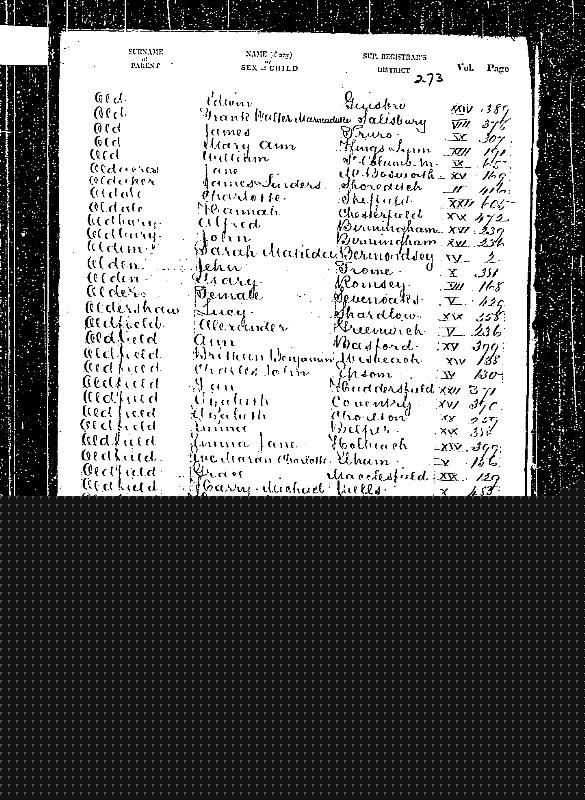 SURNAME of PARENT NAME (if any) or SEX of CHILD SUP. REGISTRAR'S DISTRICT Vol. Page
273
Old Edwin XXIV 389
Old Frank Walter Marmaduke Salisbury VIII
Old James Truro IX 307
Old Mary Ann Kings Lynn XIII 191
Old William St Columb M. IX 65
Oldacres Jane Mt Bosworth XV 169
Oldaker James Sinders Shoreditch II 416
Oldale Charlotte Sheffield XXII 605
Oldale Hannah Chesterfield XIX 472
Oldbury Alfred Birmingham XVI 239
Oldbury John Birmingham XVI 236
Sarah Matilda Bermondsey IV 2
Olden John Frome X 351
Olden Romsey VIII 168
Olders Female Sevenoaks V 429
Oldershaw Lucy Shardlow XIX 358
Oldfield Alexander Greenwich V 236
Oldfield Ann Basford XV 399
Oldfield Benjamin Wisbeach XIV 188
Oldfield Charles John Epsom IV 130
Oldfield Huddersfield XXII 371
Oldfield Elizabeth Coventry XVI 390
Oldfield Elizabeth Chorlton XX 257
Oldfield Emma Belper XIX
Oldfield Emma Jane Holbeach XIV 397
Oldfield Charlotte X 166
Oldfield Grace Macclesfield XIX 129
Oldfield Harry Michael Wells X 453